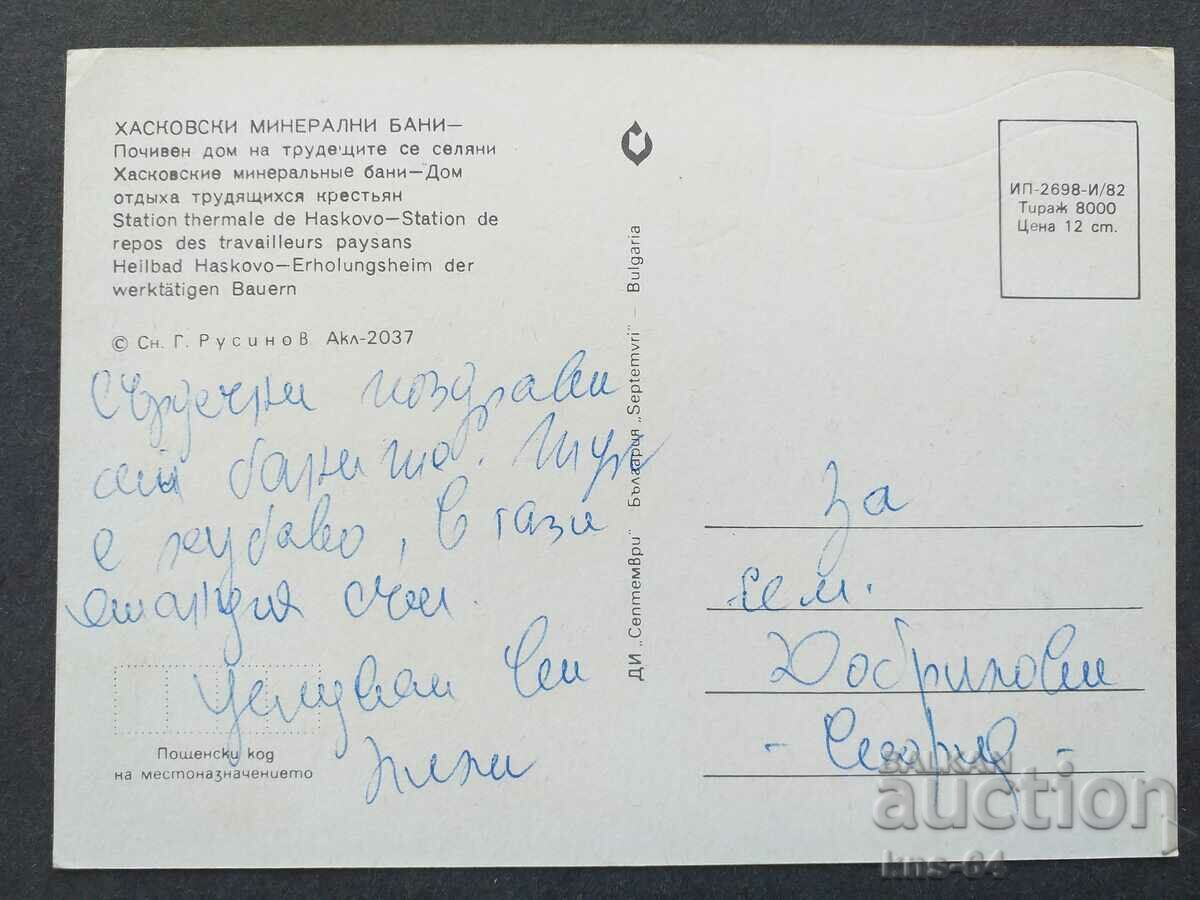 ХАСКОВСКИ МИНЕРАЛНИ БАНИ—
Почивен дом на трудещите се селяни
Хасковские минеральные бани—Дом
отдыха трудящихся крестьян
Station thermale de Haskovo—Station de
repos des travailleurs paysans
Heilbad Haskovo—Erholungsheim der
werktätigen Bauern
© Сн. Г. Русинов Акл-2037
Сърдечни поздрави
баните. Тук
е хубаво, в тази
станция съм.
Целувам Ви
Пощенски код
на местоназначението
ДИ „Септември" България „Septemvri" — Bulgaria
ИП-2698-И/82
Тираж 8000
Цена 12 ст.
За
сем.
Добрикови
BALKAN
auction
kns-64